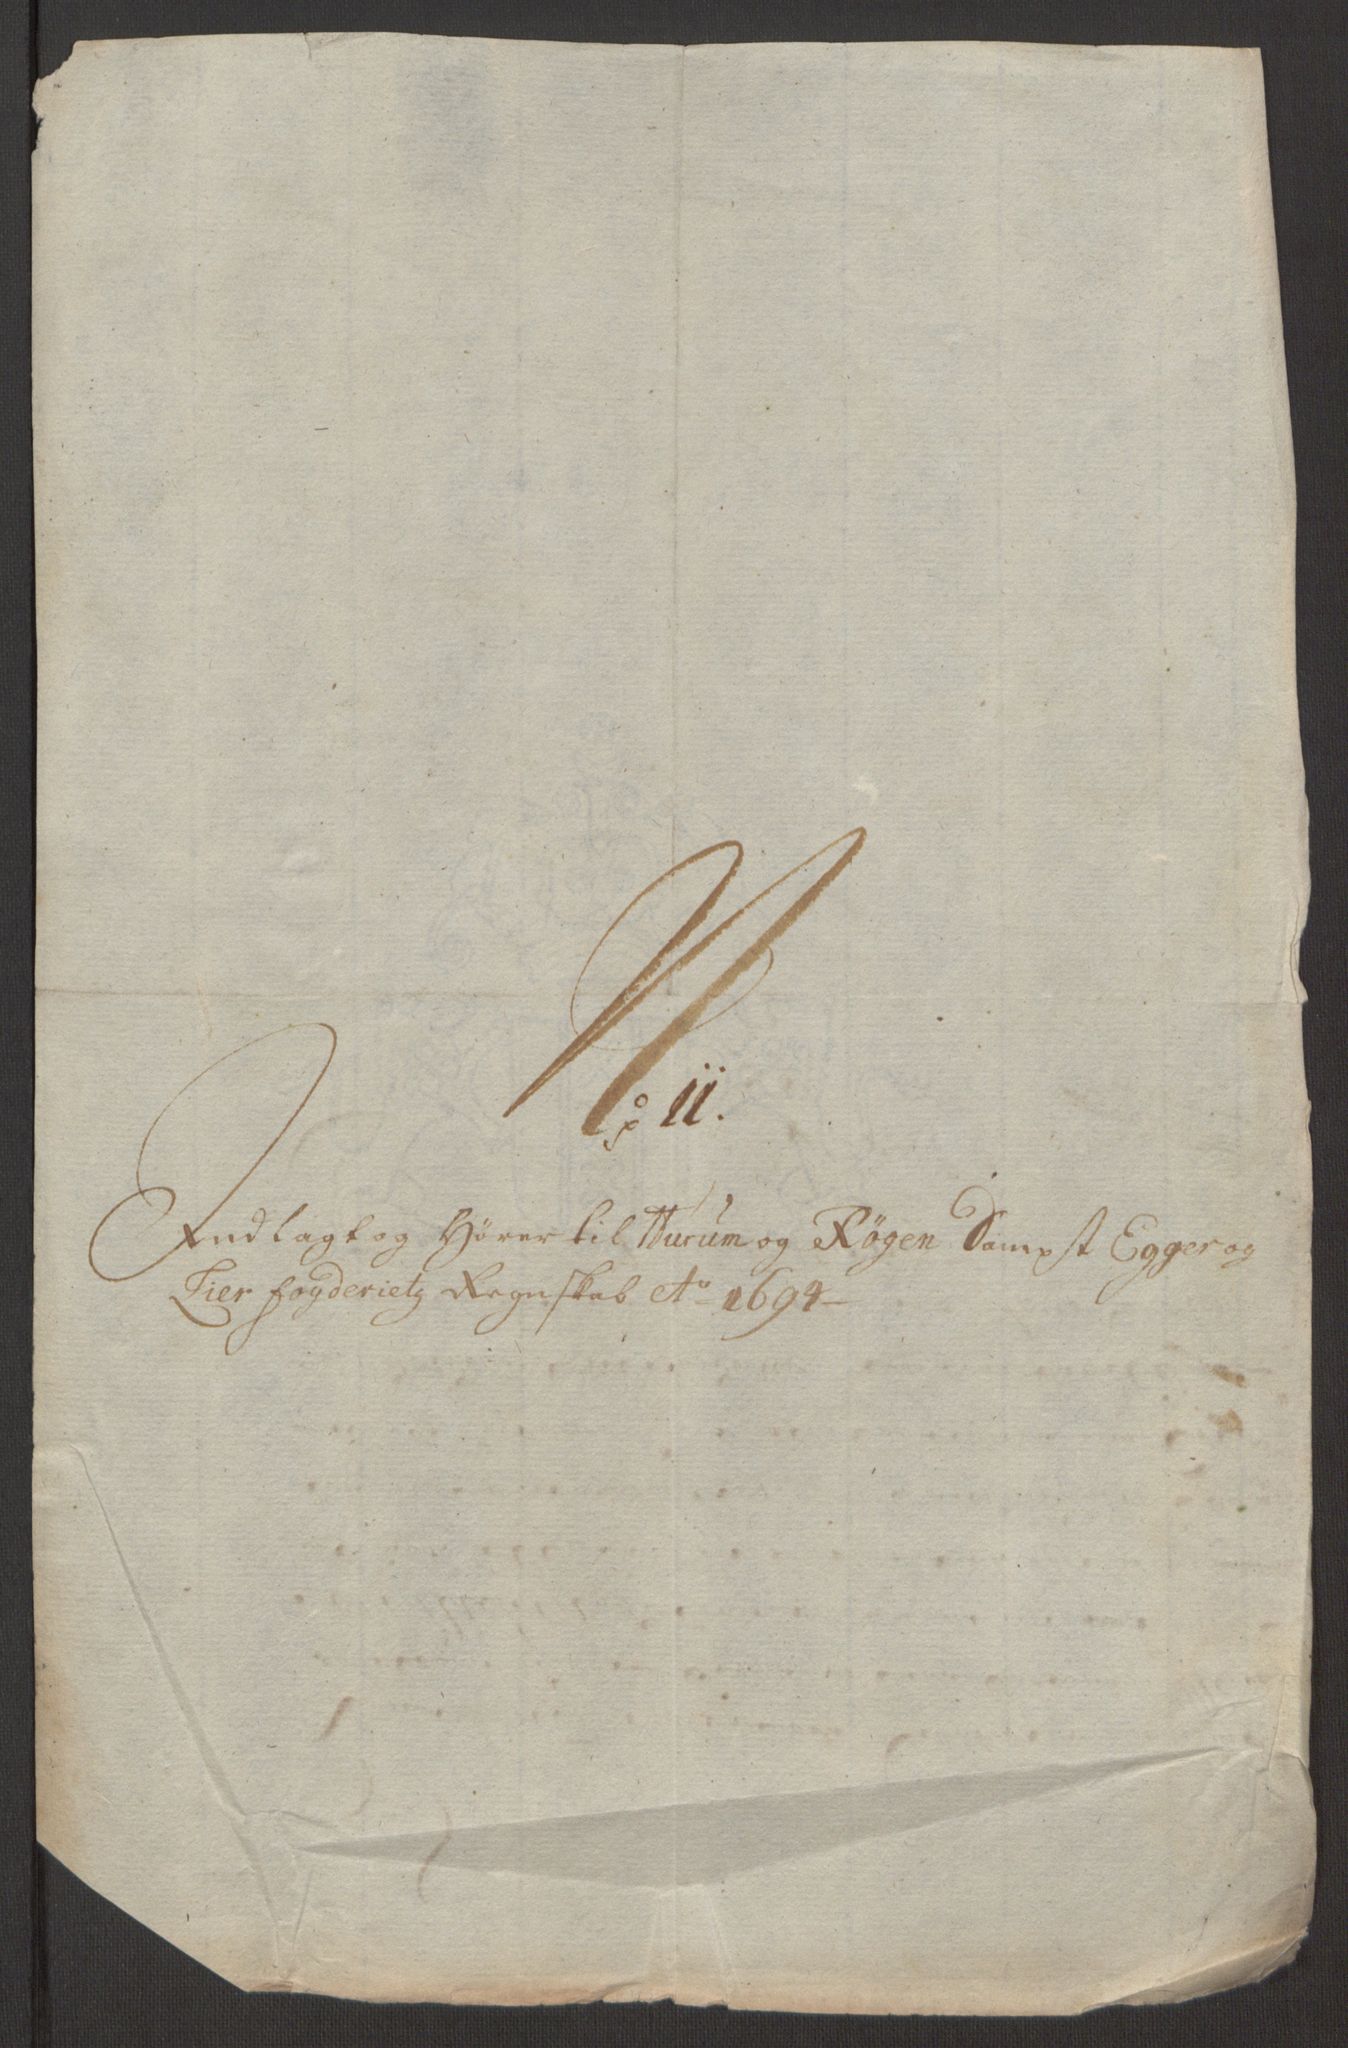 No 11.
Indlagt og Hører til Hurum og Røgen Sampt Egger og
Lier fogderietz Regnskab Ao 1694